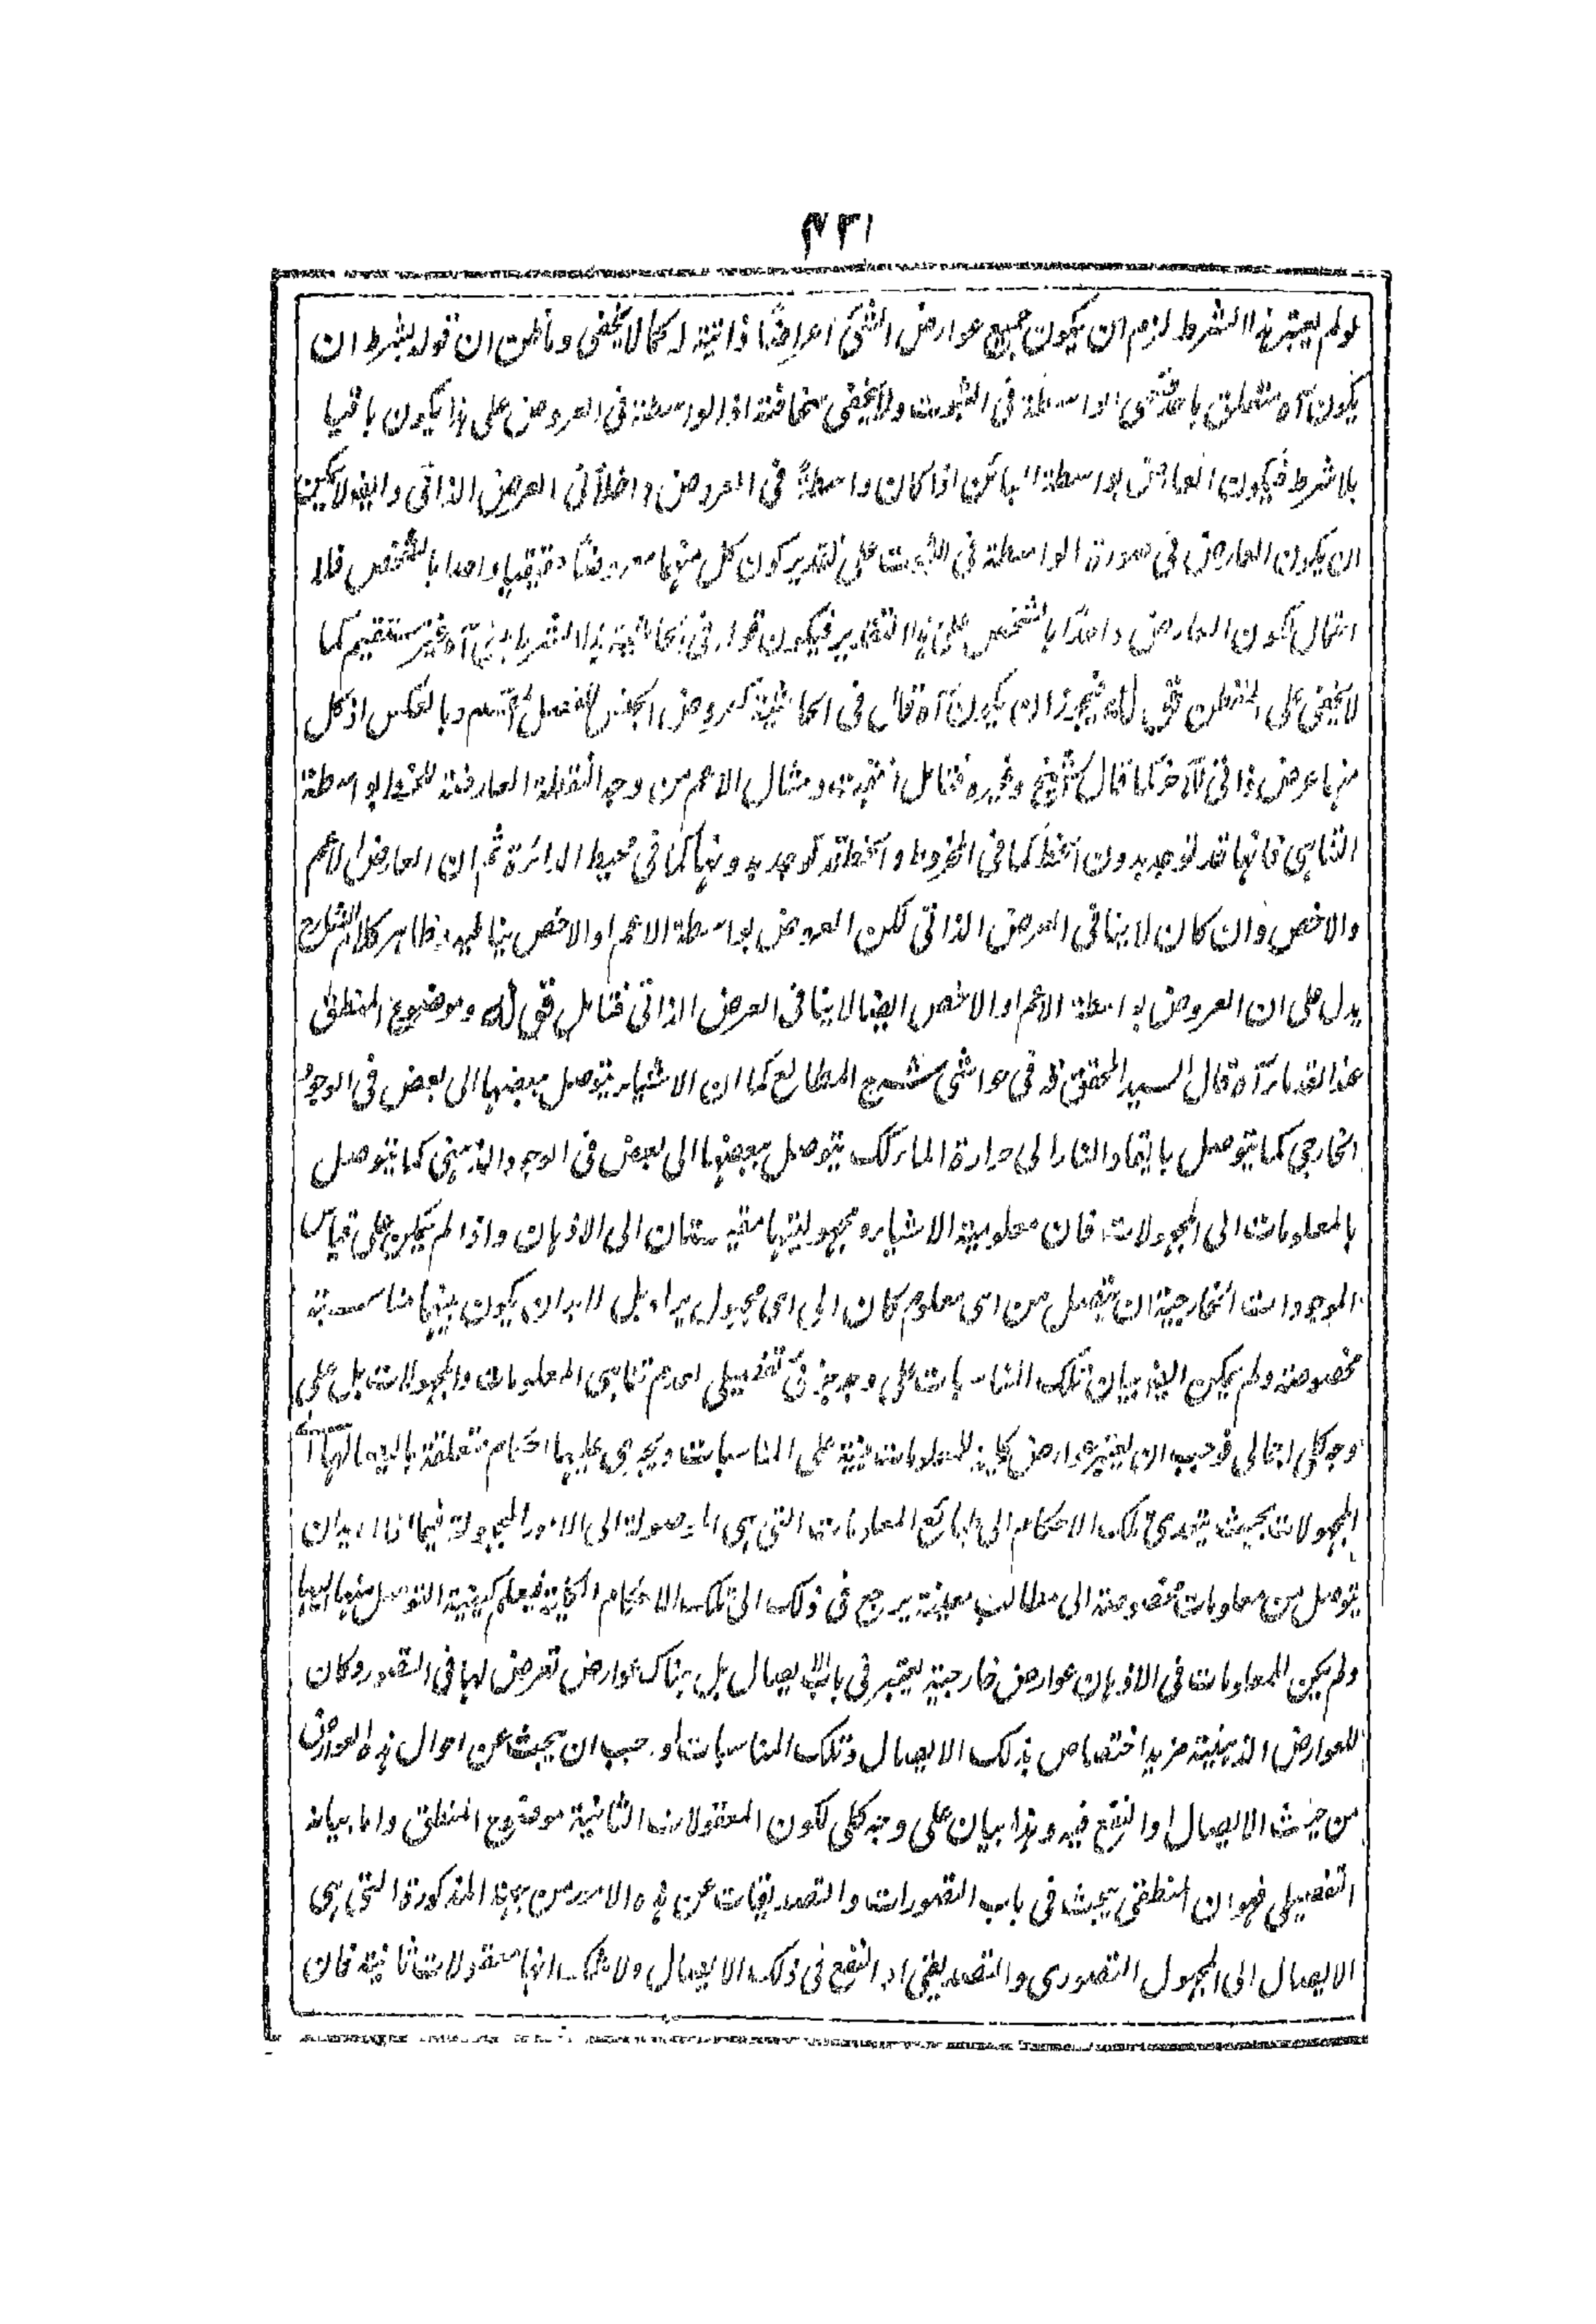 ٤٣١
لو لم يعتبر هذا الشرط لزم ان يكون جميع عوارض الشئ اعراضًا ذاتية له كما لا يخفى وما ظن ان قوله بشرط ان
يكون آه متعلق باحد قسمى الواسطة فى الثبوت ولا يخفى سخافته اذ الواسطة فى العروض على هذا يكون باقيا
بلا شرط فيكون العارض بواسطة المبائن اذا كان واسطةً فى العروض داخلاً فى العرض الذاتى وايضا لا يمكن
ان يكون العارض فى صورة الواسطة فى الثبوت على تقدير كون كل منهما معروضًا حقيقيا واحدا بالشخص فلا
احتمال لكون العارض واحدًا بالشخص على هذا التقدير فيكون قوله فى الحاشية هذا الشرط آه غير مستقيم كما
لا يخفى على المتفطن قوله فيجوز ان يكون آه قال فى الحاشية كعروض الجنس للفصل وبالعكس اذ كل
منهما عرض ذاتى للآخر كما قال الشيخ وغيره فتامل انتهت ومثال الاعم من وجه النقطة العارضة للخط بواسطة
التناهى فانها قد توجد بدون الخط كما فى المخروط والخط قد توجد بدونها كما فى محيط الدائرة ثم ان العارض الاعم
والاخص وان كان لا ينافى العرض الذاتى لكن العروض بواسطة الاعم او الاخص ينافيه وظاهر كلام الشارح
يدل على ان العروض بواسطة الاعم او الاخص ايضا لا ينافى العرض الذاتى فتامل قوله وموضوع المنطق
عند القدماء آه قال السيد المحقق قد فى حواشى شرح المطالع كما ان الاشياء يتوصل ببعضها الى بعض فى الوجود
الخارجى كما يتوصل بايقاد النار الى حرارة الماء كذلك يتوصل ببعضها الى بعض فى الوجود الذهنى كما يتوصل
بالمعلومات الى المجهولات فان معلومية الاشياء ومجهوليتها مقيستان الى الاذهان واذا لم يكن على قياس
الموجودات الخارجية ان يتصل من اى معلوم كان الى اى مجهول يراد بل لا بد ان يكون بينهما مناسبة
مخصوصة ولم يمكن ايضا بيان تلك المناسبات على وجه جزئى تفصيلى لعدم تناهى المعلومات والمجهولات بل على
وجه كلى اجمالى فوجب ان يعتبر عوارض كلية للمعلومات مبنية على المناسبات ويجرى عليها احكام متعلقة بالايصال الى
المجهولات بحيث يتعدى تلك الاحكام الى طبائع المعلومات التى هى الموصولة الى الامور المجهولة فيما اذا اريد ان
يتوصل من معلومات مخصوصة الى مطالب معينة يرجع فى ذلك الى تلك الاحكام الكلية فيعلم كيفية التوصل منها اليها
ولم يكن للمعلومات فى الاذهان عوارض خارجية يعتبر فى باب الايصال بل هناك عوارض تعرض لها فى التصور وكان
للعوارض الذهنية مزيد اختصاص بذلك الايصال وتلك المناسبات وجب ان يبحث عن احوال هذه العوارض
من حيث الايصال او النفع فيه وهذا بيان على وجه كلى لكون المعقولات الثانية موضوع المنطق واما بيانه
التفصيلى فهو ان المنطقى يبحث فى باب التصورات والتصديقات عن هذه الامور من جهة المذكورة التى هى
الايصال الى المجهول التصورى والتصديقى او النفع فى ذلك الايصال ولا شك انها معقولات ثانية فان